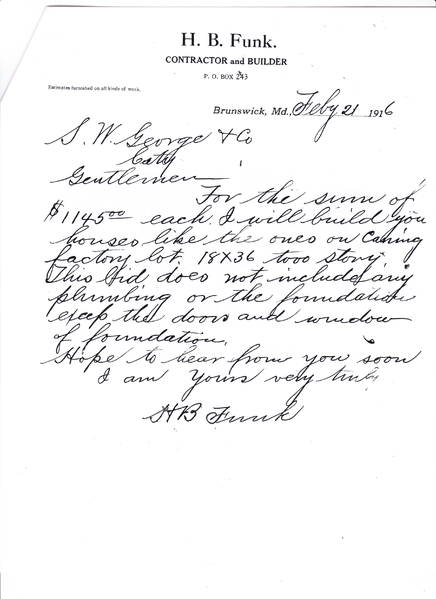 H. B. Funk.
CONTRACTOR and BUILDER
P. O. BOX 243
Estimates furnished on all kinds of work.
Brunswick, Md., Feby 21 1916
S. W. George & Co
City
Gentlemen
For the sum of
$1145.00 each I will build you
houses like the ones on Caning
factory lot. 18X36 tooo story.
This bid does not include any
plumbing or the foundation
excep the doors and window
of foundation.
Hope to hear from you soon
I am yours very truly
HB Funk